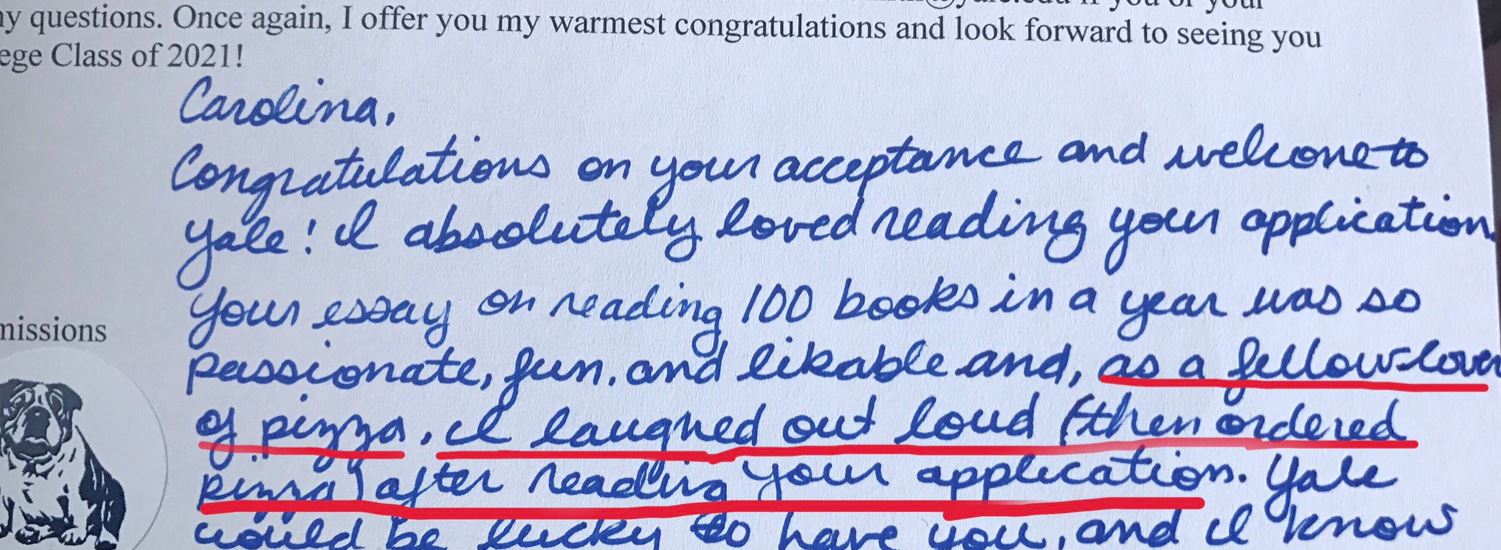 y questions. Once again, I offer you my warmest congratulations and look forward to seeing you
ege Class of 2021!
Carolina,
Congratulations on your acceptance and welcome to
Yale! I absolutely loved reading your application.
Your essay on reading 100 books in a year was so
nissions
passionate, fun, and likable and, as a fellow lover
of pizza, I laughed out loud (then ordered
pizza) after reading your application. Yale
would be lucky to have you, and I know